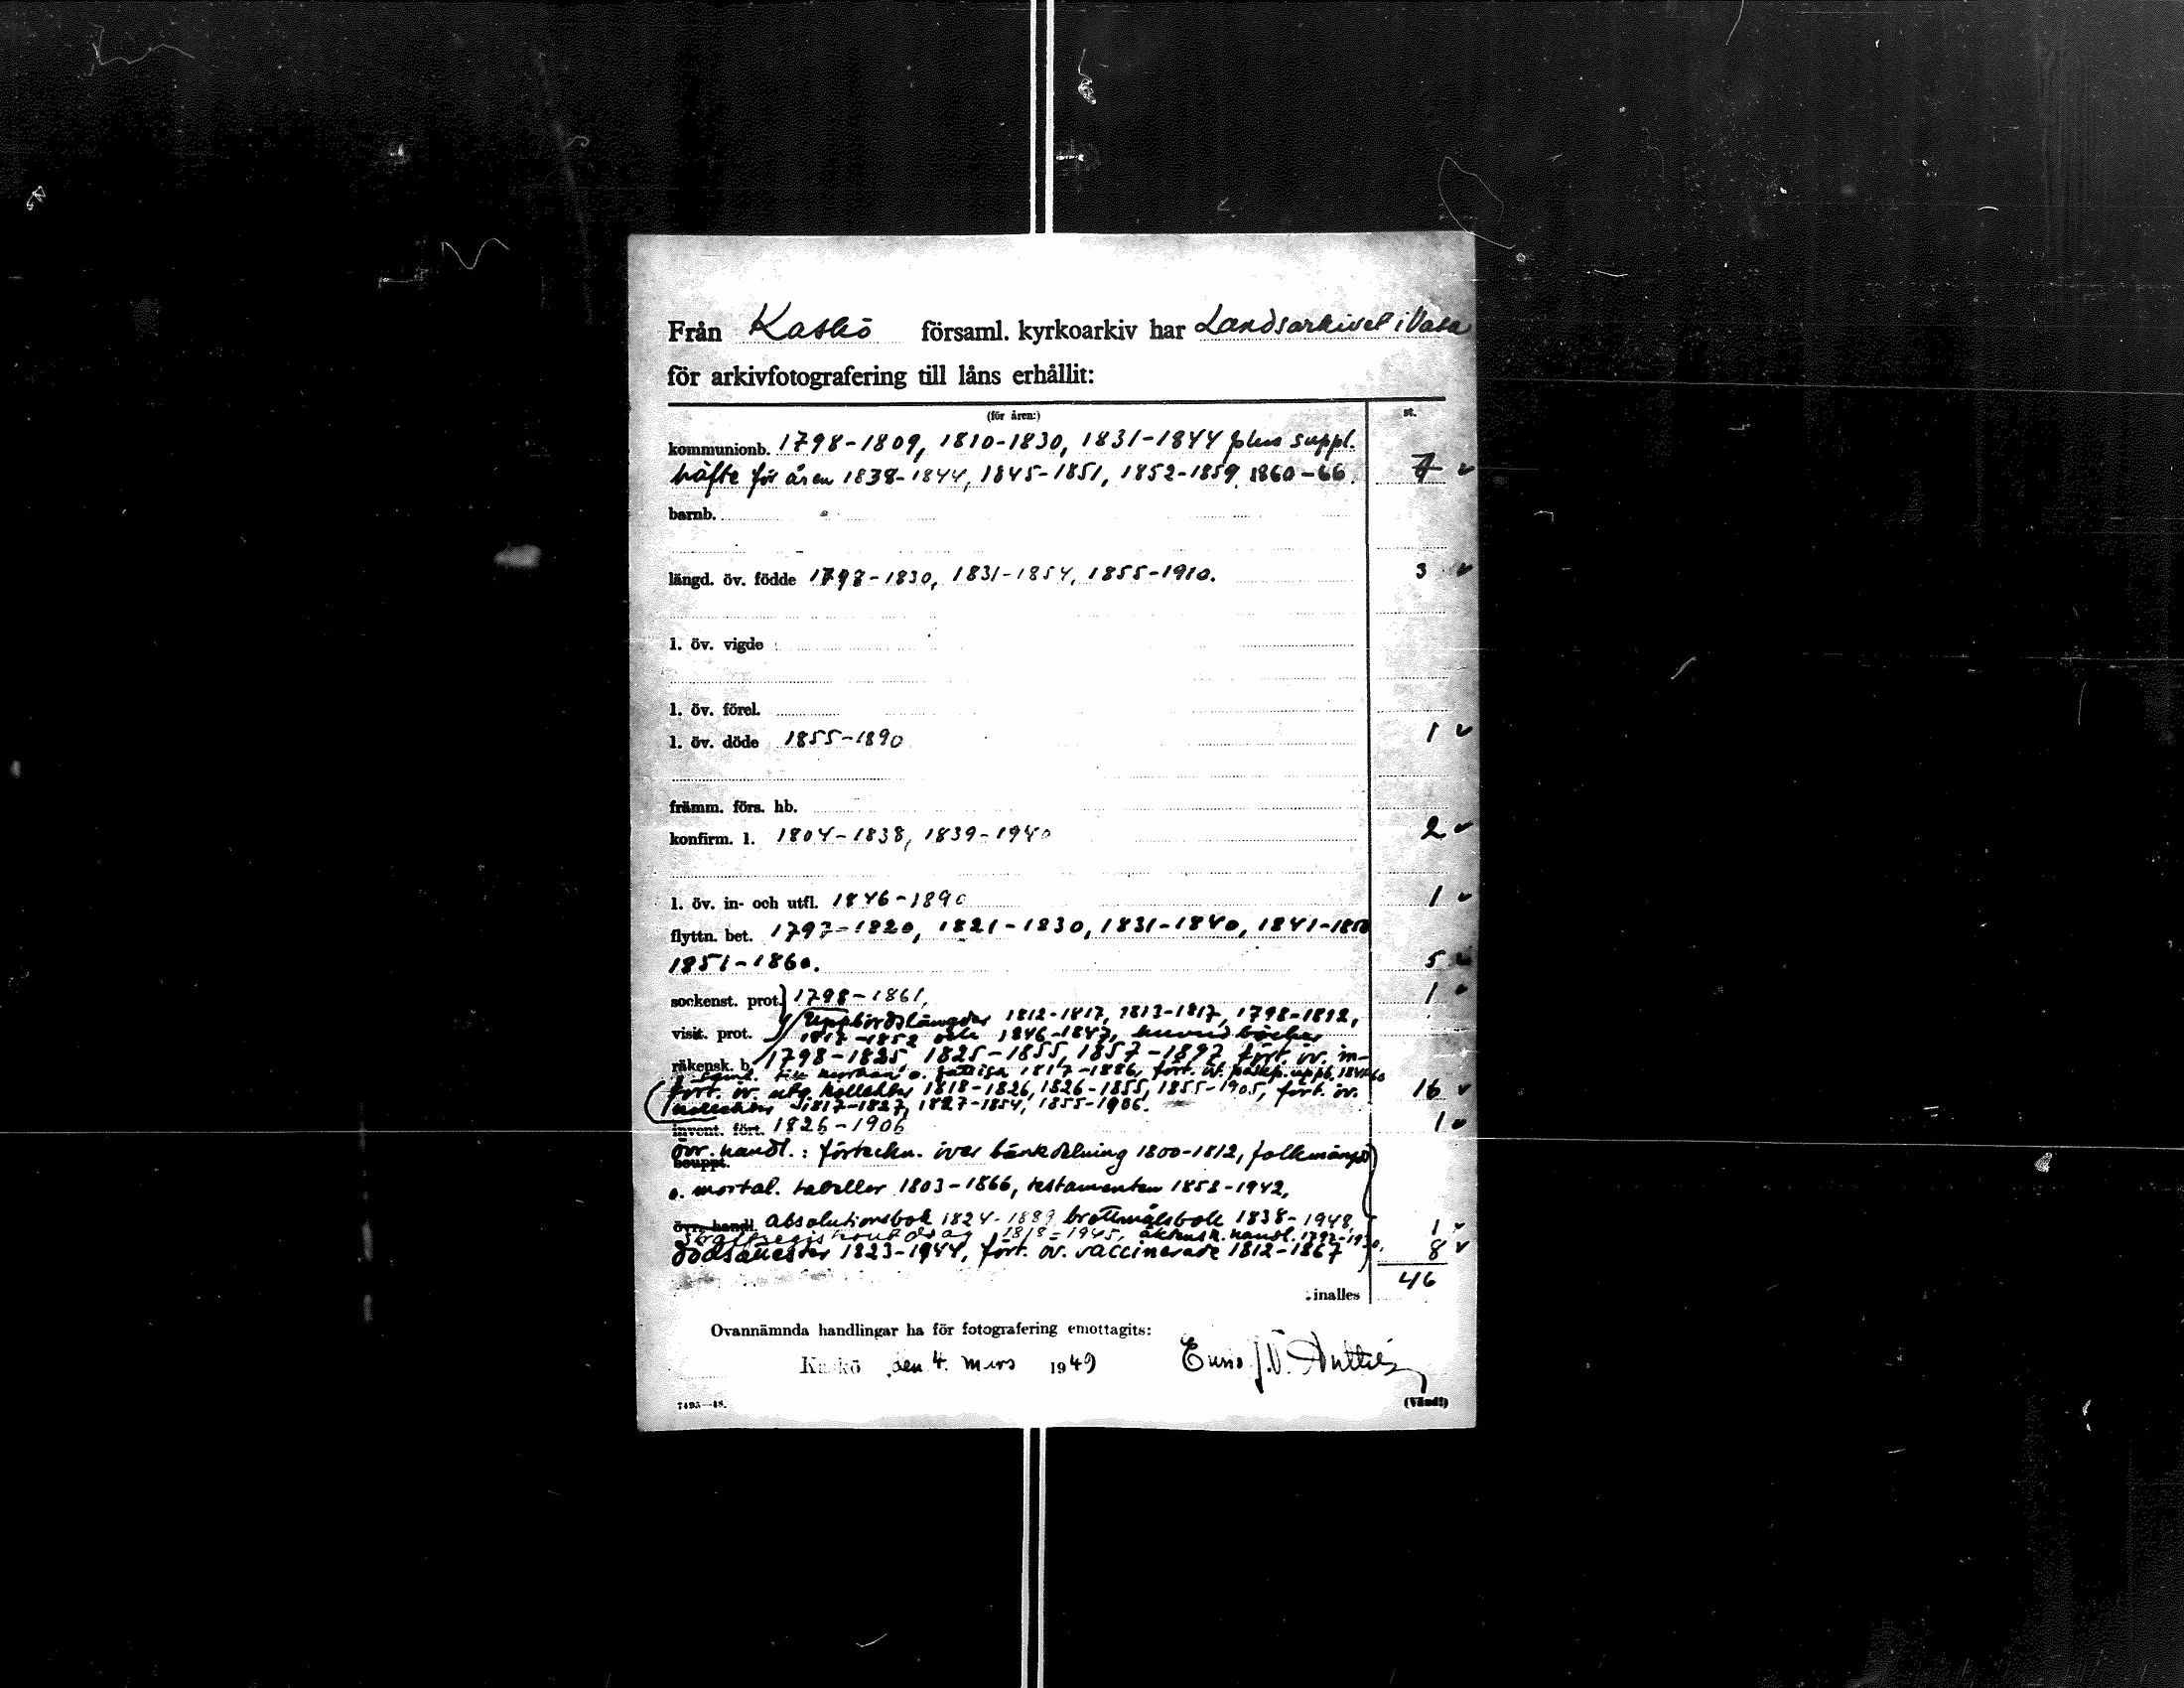 Från Kaskö församl. kyrkoarkiv har Landsarkivet i Vasa
för arkivfotografering till låns erhållit:
(för åren:) st.
kommunionb. 1798-1809, 1810-1830, 1831-1844 plus suppl.
häfte för åren 1838-1844, 1845-1851, 1852-1859, 1860-66. 7 ✓
barnb.
längd. öv. födde 1798-1830, 1831-1854, 1855-1910. 3 ✓
l. öv. vigde
l. öv. förel.
l. öv. döde 1855-1890 1 ✓
främm. förs. hb.
konfirm. l. 1804-1838, 1839-1940 2 ✓
l. öv. in- och utfl. 1846-1890 1 ✓
flyttn. bet. 1797-1820, 1821-1830, 1831-1840, 1841-1850
1851-1860. 5 ✓
sockenst. prot. 1798-1861, 1
Uppbördslängder 1812-1817, 1813-1817, 1798-1812,
visit. prot. 1817-1852 och 1846-1847, huvudböcker
räkensk. b. 1798-1825, 1825-1855, 1857-1897, fört. öv. in-
till kyrkan o. fattiga 1817-1886, fört. öv.
fört. öv. utg. kollekter 1818-1826, 1826-1855, 1855-1905, fört. öv. 16 ✓
kollekter 1817-1827, 1827-1854, 1855-1906.
invent. fört. 1826-1906 1 ✓
övr. handl.: förteckn. över bänkdelning 1800-1812, folkmängds
bouppt.
o. mortal. tabeller 1803-1866, testamenten 1858-1942,
övr. handl. absolutionsbok 1824-1889, brottmålsbok 1838-1948, 1 ✓
Straffregisterutdrag 1818-1945, äktensk. handl. 1797-1930,
dödsattester 1823-1944, fört. öv. vaccinerade 1812-1867 8 ✓
46
inalles
Ovannämnda handlingar ha för fotografering emottagits:
Kaskö den 4. mars 1949
7495—48. (Vänd!)